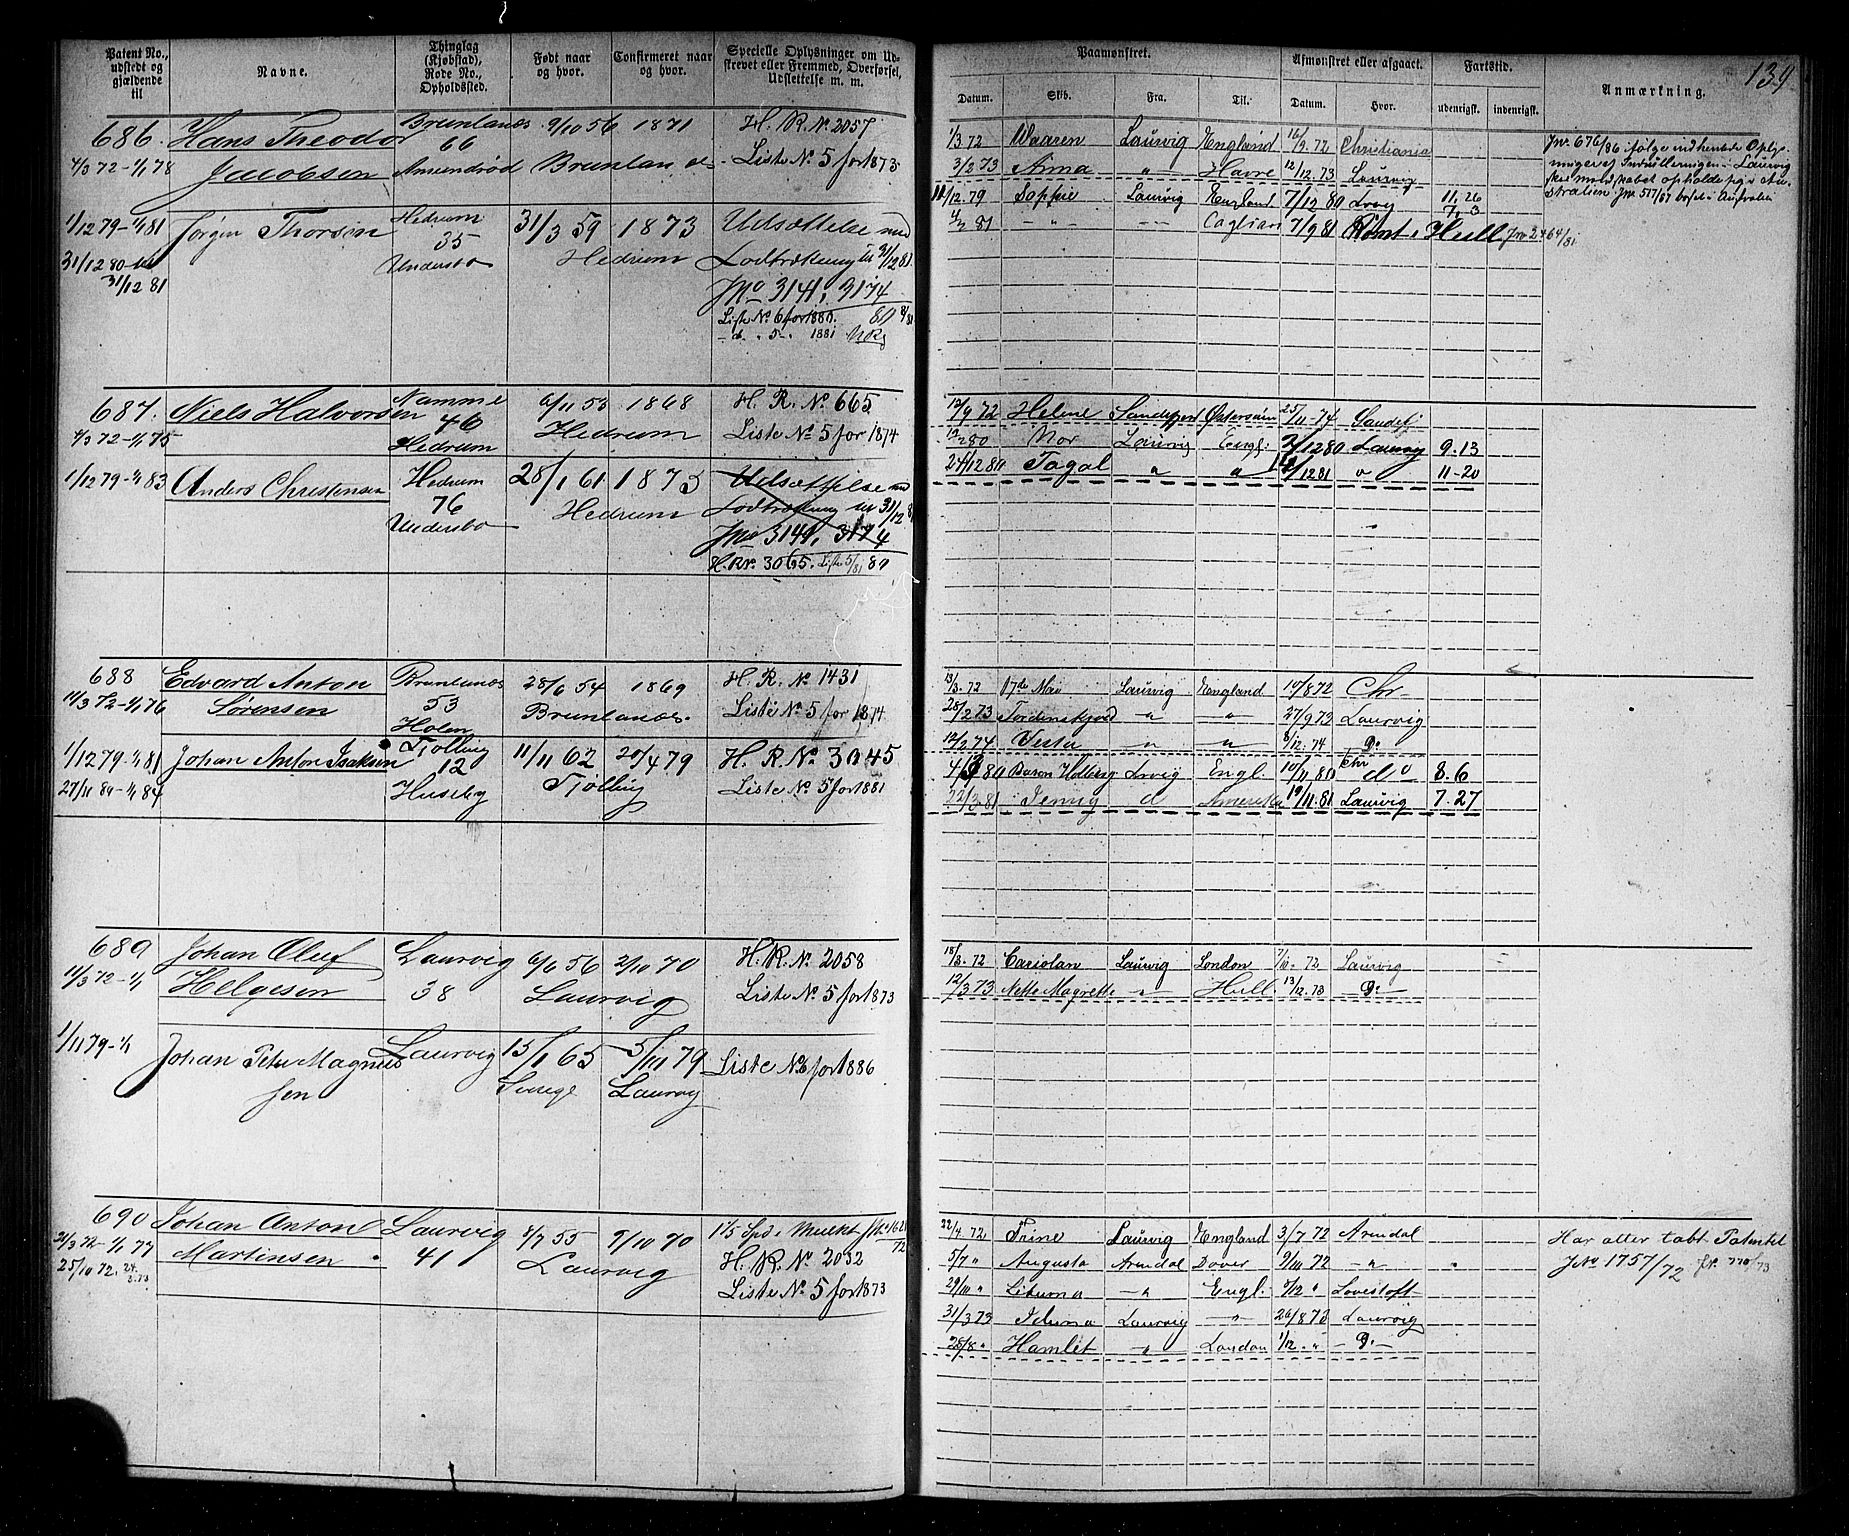 Patent No., udstedt og gjældende til
Navne.
Thinglag (Kjøbstad), Rode No., Opholdssted.
Født naar og hvor.
Confirmeret naar og hvor.
Specielle Oplysninger om Udskrevet eller Fremmed, Overførsel, Udslettelse m. m.
Paamønstret.
Afmønstret eller afgaaet.
Fartstid.
Anmærkning.
139
Datum. Skib. Fra. Til. Datum. Hvor. udenrigsk. indenrigsk.
686. Hans Theodor Brunlanes 9/10 56 1871 H. R. No 2057
66
4/3 72 - 1/1 78 Jacobsen Amundrød Brunlanes Liste No 5 for 1873
1/12 79 - 1/1 81 Jørgen Thorsen Hedrum 31/3 59 1873 Udsættelse med
35
31/12 80 Understo Hedrum Lodtrækning til 31/12 81
31/12 81
Jno 3141, 3174
Liste No 6 for 1880. 80
5 1881
1/3 72 Waaren Laurvig England 16/9 72 Christiania
3/2 73 Anna " Havre 12/12 73 Laurvig
11/12 79 Sophie Laurvig England 7/12 80 Lrvig 11, 26
7, 3
81 - " - Cagliari 7/9 81 Rømt i Hull Jno 2464/81
Jno 676/86 ifølge indhentede Oplysninger
Laurvig
Australien Jno 517/87 Australien
687. Niels Halvorsen Namme 6/11 53 1868 H. R. No 665
46
4/3 72 - 1/1 75 Hedrum Hedrum Liste No 5 for 1874
1/12 79 - 1/1 83 Anders Christensen Hedrum 28/1 61 1873 Udsættelse med
76
Understo Hedrum Lodtrækning til 31/12 81
Jno 3141, 3174
H. R. No. 3065. Liste 5/81 80
12/9 72 Helene Sandefjord Østersøen 25/11 74 Sandefj
80 Nor Laurvig Engl. 2/12 80 Laurvig 9. 13
24/12 80 Tagal " " 12 81 " 11 - 20
688 Edvard Anton Brunlanes 28/6 54 1869 H. R. No 1431
53
11/3 72 - 1/1 76 Sørensen Holen Brunlanes. Liste No 5 for 1874
1/12 79 - 1/1 81 Johan Anton Isaksen Tjølling 11/11 62 20/4 79 H. R. No 3045
12
27/11 80 - 1/1 84 Huseby Tjølling Liste No 5 for 1881
13/3. 72 17de Mai Laurvig England 10/8 72 Chr
28/2 73 Tordenskjold " " 27/9 73 Laurvig
12/2 74 Vesta " " 8/12. 74 Do
80 Baron Holberg Lrvig Engl. 10/11 80 Chr do 8. 6
22/3. 81 Jenny d Amerika 19/11. 81 Laurvig 7. 27
689 Johan Oluf Laurvig 6/6 56 2/10 70 H. R. No 2058
11/3 72 - 1/1 Helgesen 38 Laurvig Liste No 5 for 1873
1/11 79 - 1/1 Johan Peter Magnussen Laurvig 15/1 65 5/10 79 Liste No 6 for 1886
Sverige Laurvig
18/3. 72 Cariolan Laurvig London 7/10. 72 Laurvig
12/3 73 Nette Magrette " Hull 13/12. 73 Do
690 Johan Anton Laurvig 4/7 55 9/10 70 1½ Spd. i Mulkt
21/3 72 - 1/1 77 Martinsen 41 Laurvig H. R. No 2052
25/10 72. Liste No 5 for 1873
22/4 72 Trine Laurvig England 3/7 72 Arendal
5/7 " Augusta Arendal Dover 9/10 72 - " -
29/10 " Iduna - " Engl. 9/12 " Lovestoft
31/3 73 Iduna Laurvig - " - 26/8 73 Laurvig
28/8 " Hamlet - " - London 1/12. " - Do -
Har atter tabt Patentet
Jno 1757/72 770/73